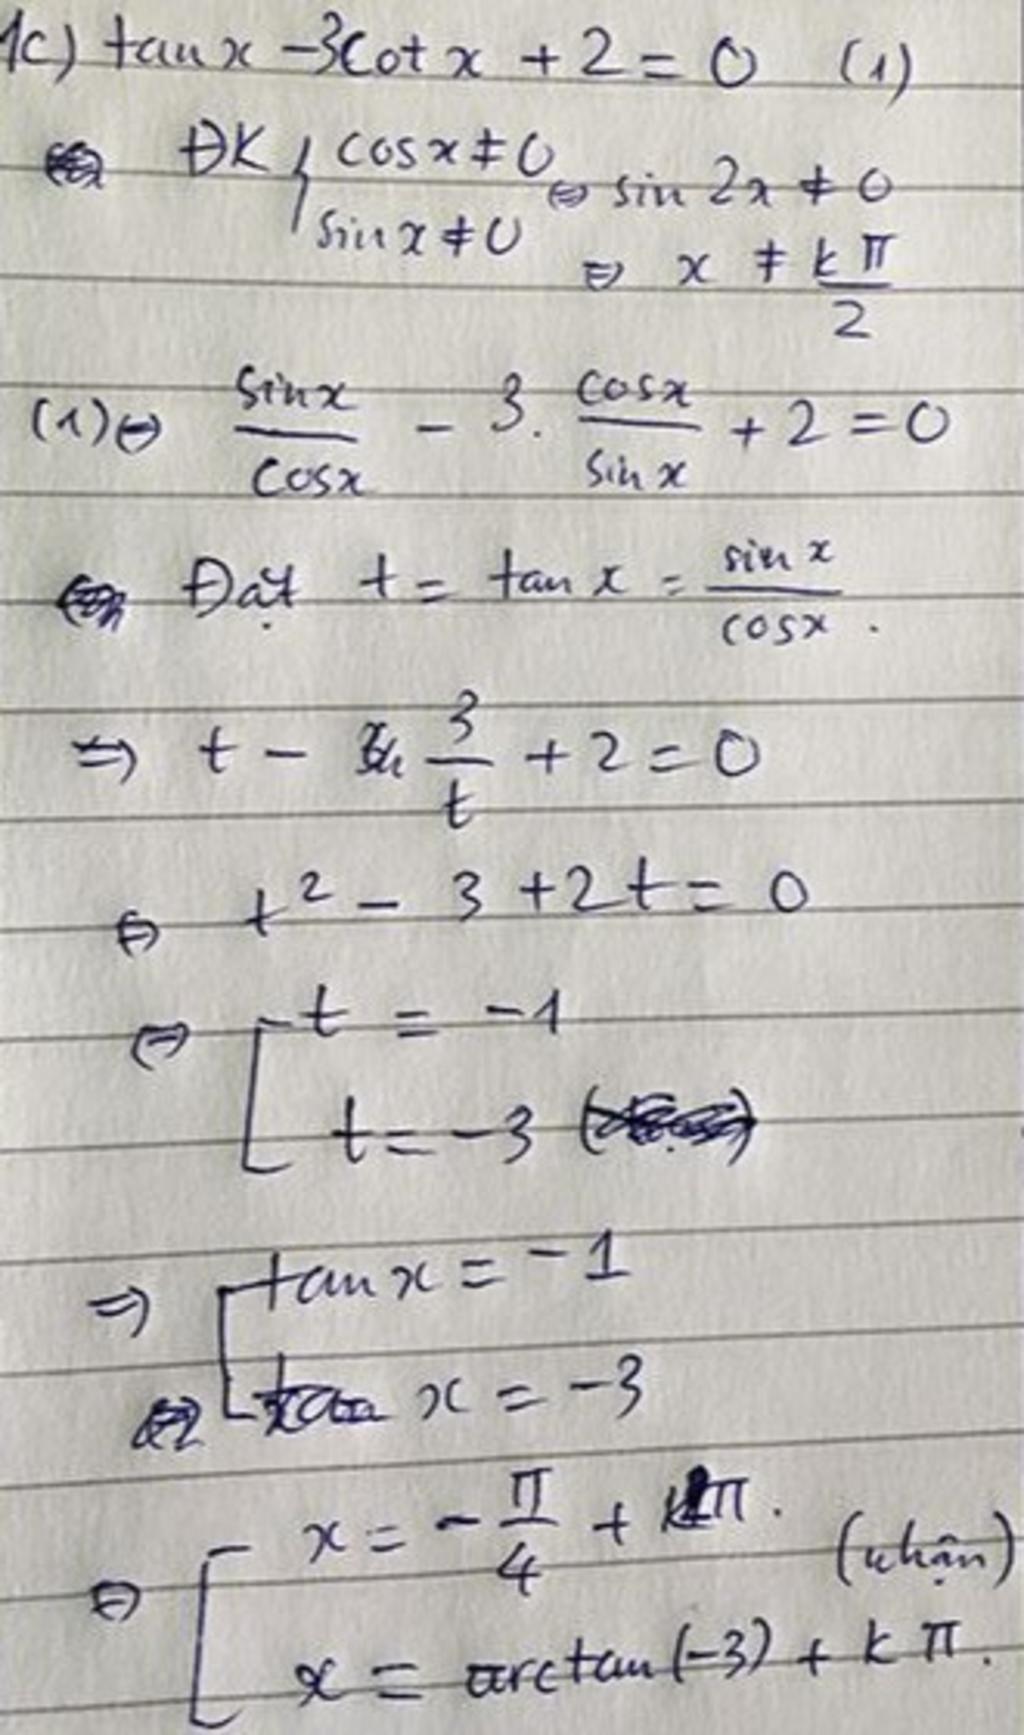 1c) tan x - 3cot x + 2 = 0 (1)
ĐK { cos x ≠ 0
sin x ≠ 0 ⇔ sin 2x ≠ 0
⇔ x ≠ kπ/2
(1) ⇔ sin x / cos x - 3. cos x / sin x + 2 = 0
Đặt t = tan x = sin x / cos x .
⇒ t - 3/t + 2 = 0
⇔ t² - 3 + 2t = 0
⇔ [ t = -1
t = -3
⇒ [ tan x = -1
tan x = -3
⇔ [ x = -π/4 + kπ. (nhận)
x = arctan(-3) + kπ.